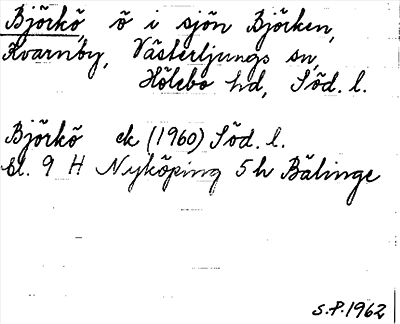 Björkö ö i sjön Björken,
Kvarnby, Västerljungs sn,
Hölebo hd, Söd. l.
Björkö ek (1960) Söd. l.
bl. 9 H Nyköping 5 h Bälinge
S.P. 1962